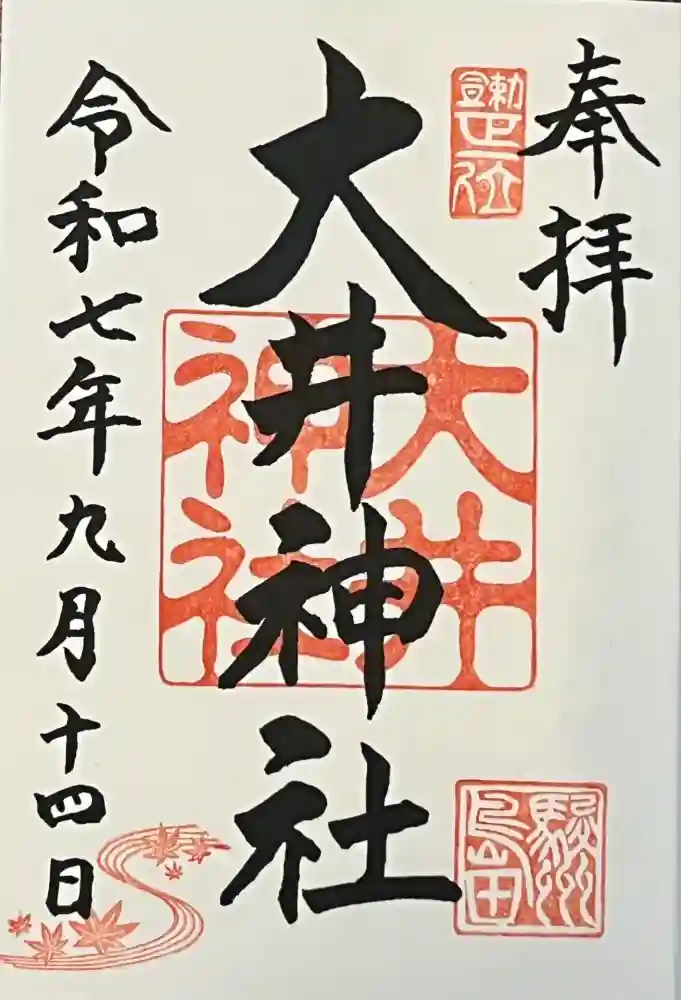 奉拝
勅宣正一位
大井神社
大井神社
駿州島田
令和七年九月十四日